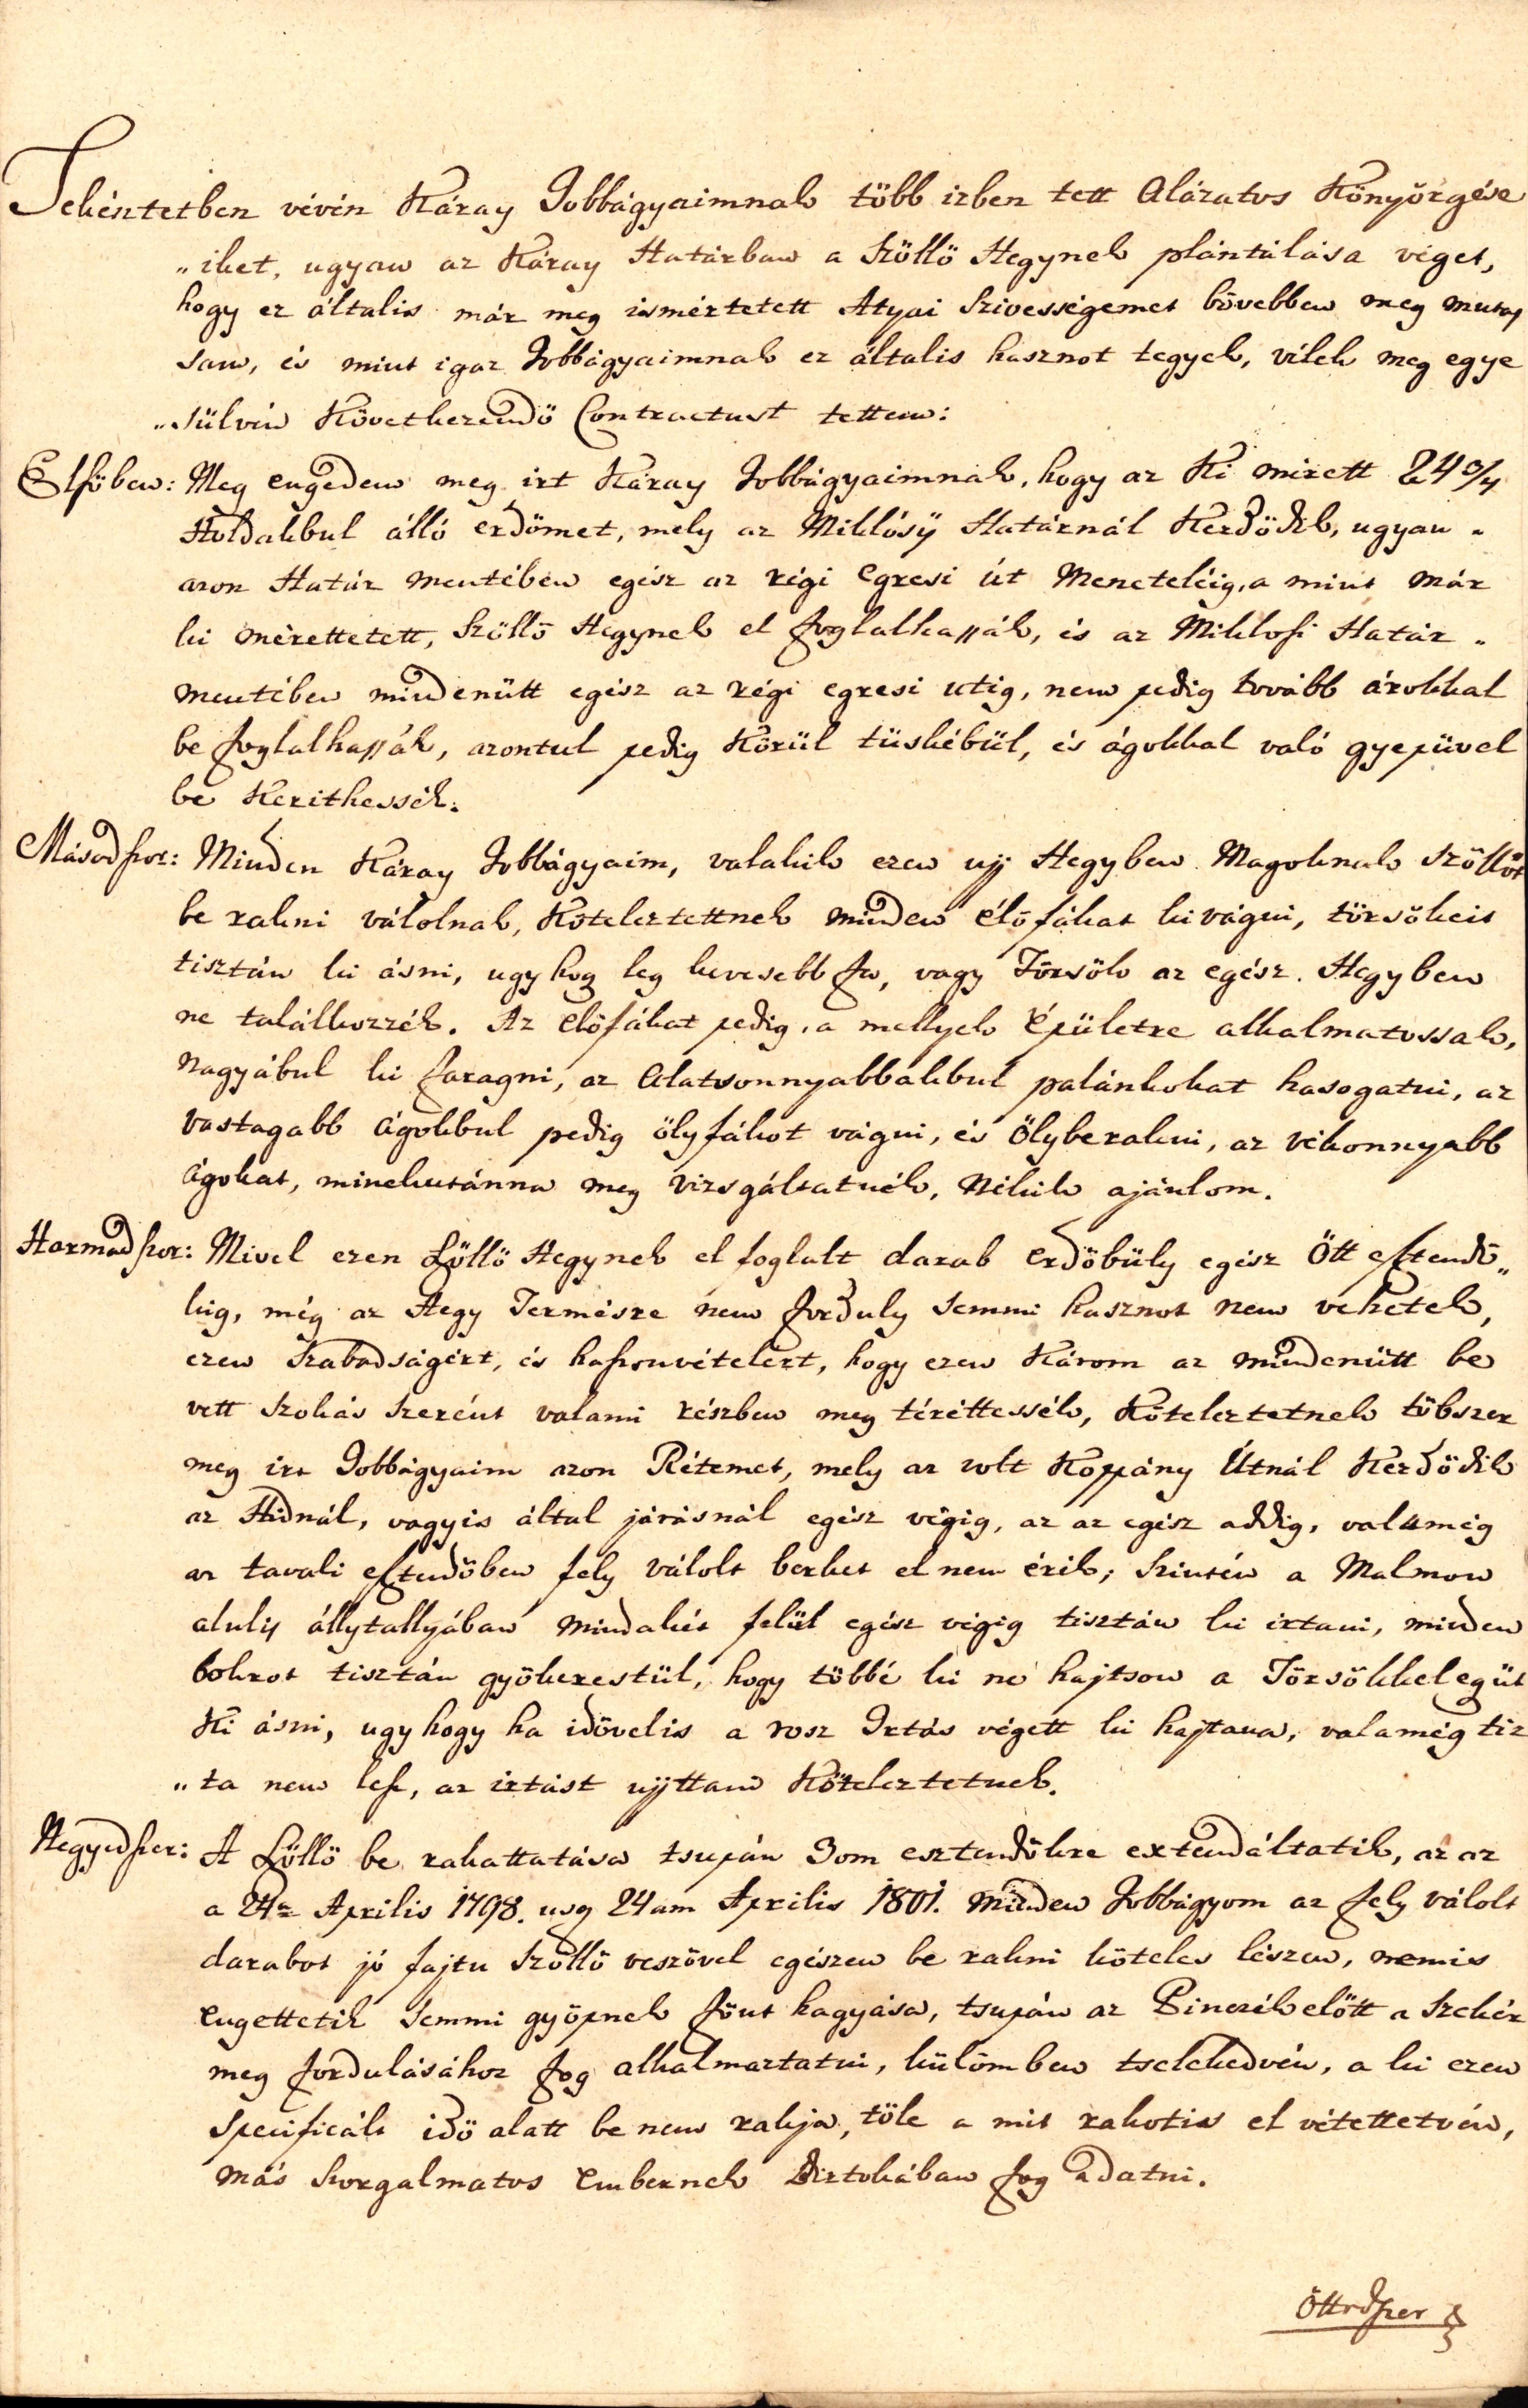 Tekéntetben vévén Káray Jobbágyaimnak több izben tett Alázatos Könyörgése
„iket, ugyan az Káray Határban a Szöllö Hegynek plántálása véget,
hogy ez általis már meg ismértetett Atyai Szivességemet bövebben meg mutas
sam, és mint igaz Jobbágyaimnak ez általis hasznot tegyek, vélek meg egye
„sülvén Következendö Contractust tettem:
Elsöben: Meg engedem meg irt Káray Jobbágyaimnak, hogy az Ki mérett 24 3/4
Holdakbul álló erdömet, mely az Miklósÿ Határnál Kezdödik, ugyan „
azon Határ mentében egész az régi Egresi út Meneteléig, a mint már
ki mérettetett, Szöllö Hegynek el foglalhassák, és az Miklosi Határ „
mentében mindenütt egész az régi egresi utig, nem pedig tovább árokkal
be foglalhassák, azontul pedig Körül tüskébül, és ágokkal való gyepüvel
be Kerithessék.
Másodszor: Minden Káray Jobbágyaim, valakik ezen uÿ Hegyben Magoknak Szöllöt
be rakni válolnak, Köteleztettnek minden élöfákat ki vágni, törsökeit
tisztán ki ásni, ugy hog leg kevesebb fa, vagy Törsök az egész Hegyben
ne találkozzék. Az élöfákat pedig, a mellyek Épületre alkalmatossak,
Nagyábul ki faragni, az Alatsonnyabbakbul palánkokat hasogatni, az
vastagabb Ágokbul pedig ölyfákot vágni, és Ölyberakni, az vékonnyabb
Ágokat, minekutánna meg vizsgáltatnék, Nékik ajánlom.
Harmadszor: Mivel ezen Szöllö Hegynek el foglalt darab Erdöbüly egész Ött esztendö„
kig, még az Hegy Termésre nem forduly semmi hasznot nem vehetek,
ezen szabadságért, és haszonvételért, hogy ezen Károm az mindenütt be
vett szokás szerént valami részben meg téréttessék, Köteleztetnek töbszer
meg irt Jobbágyaim azon Rétemet, mely az volt Koppány Útnál Kezdödik
az Hidnál, vagyis által járásnál egész végig, az az egész addig, valamég
az tavali esztendöben fely válolt berket el nem érik; Szintén a Malmon
aluly állytallyában mindakét felül egész végig tisztán ki irtani, minden
bokrot tisztán gyökerestül, hogy többé ki ne hajtson a Törsökkel egüt
Ki ásni, ugy hogy ha idövelis a rosz Irtás végett ki hajtana, valamég tiz
„ta nem lesz, az irtást uÿttan Köteleztetnek.
Negyedszer: A Szöllö be rakattatása tsupán 3om esztendökre extendáltatik, az az
a 24a Aprilis 1798. usq 24am Aprilis 1801. Minden Jobbágyom az fely válolt
darabot jó fajtu Szöllö veszövel egészen be rakni köteles lészen, nemis
Engettetik semmi gyöpnek fönt hagyása, tsupán az Pinczék elött a Szekér
meg fordulásához fog alkalmaztatni, külömben tselekedvén, a ki ezen
specificált idö alatt be nem rakja, töle a mit rakotis el vétettetvén,
más Szorgalmatos Embernek Birtokában fog adatni.
Öttödszer